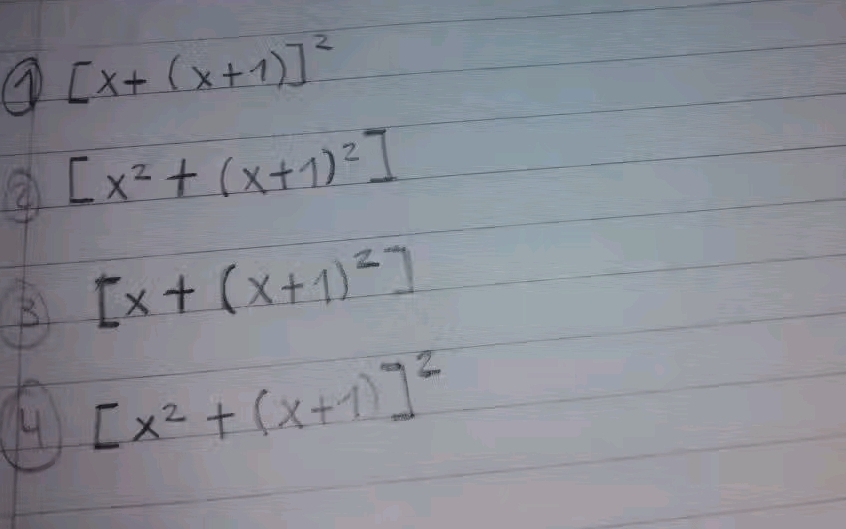 ① [x + (x+1)]²
② [x² + (x+1)²]
③ [x + (x+1)²]
④ [x² + (x+1)]²